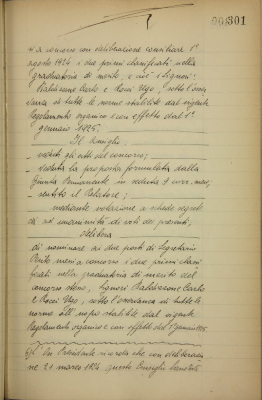 301
a concorso con deliberazione consiliare 1°
agosto 1924 i due primi classificati nella
graduatoria di merito, e cioè i Signori:
Baldassone Carlo e Ugo, sotto l'osser-
vanza di tutte le norme stabilite dal vigente
Regolamento organico e con effetto dal 1°
gennaio 1925.
Il Consiglio
veduti gli atti del concorso;
veduta la proposta formulata dalla
Giunta Permanente in seduta 7 corr. mese;
sentito il Relatore;
mediante votazione a schede segrete
ed ad unanimità di voti dei presenti;
Delibera
di nominare ai due posti di Segretario
messi a concorso i due primi classi-
ficati nella graduatoria di merito del
concorso stesso, Signori Baldassone Carlo
e Ugo, sotto l'osservanza di tutte le
norme all'uopo stabilite dal vigente
Regolamento organico e con effetto dal 1° gennaio 1925
Presidente ricorda che con deliberazio-
ne 21 marzo 1924 questo Consiglio